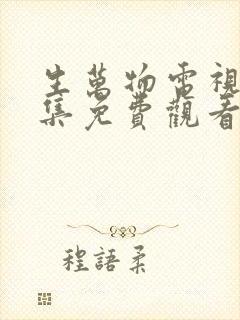 生萬物電視
集免費觀看
程語柔